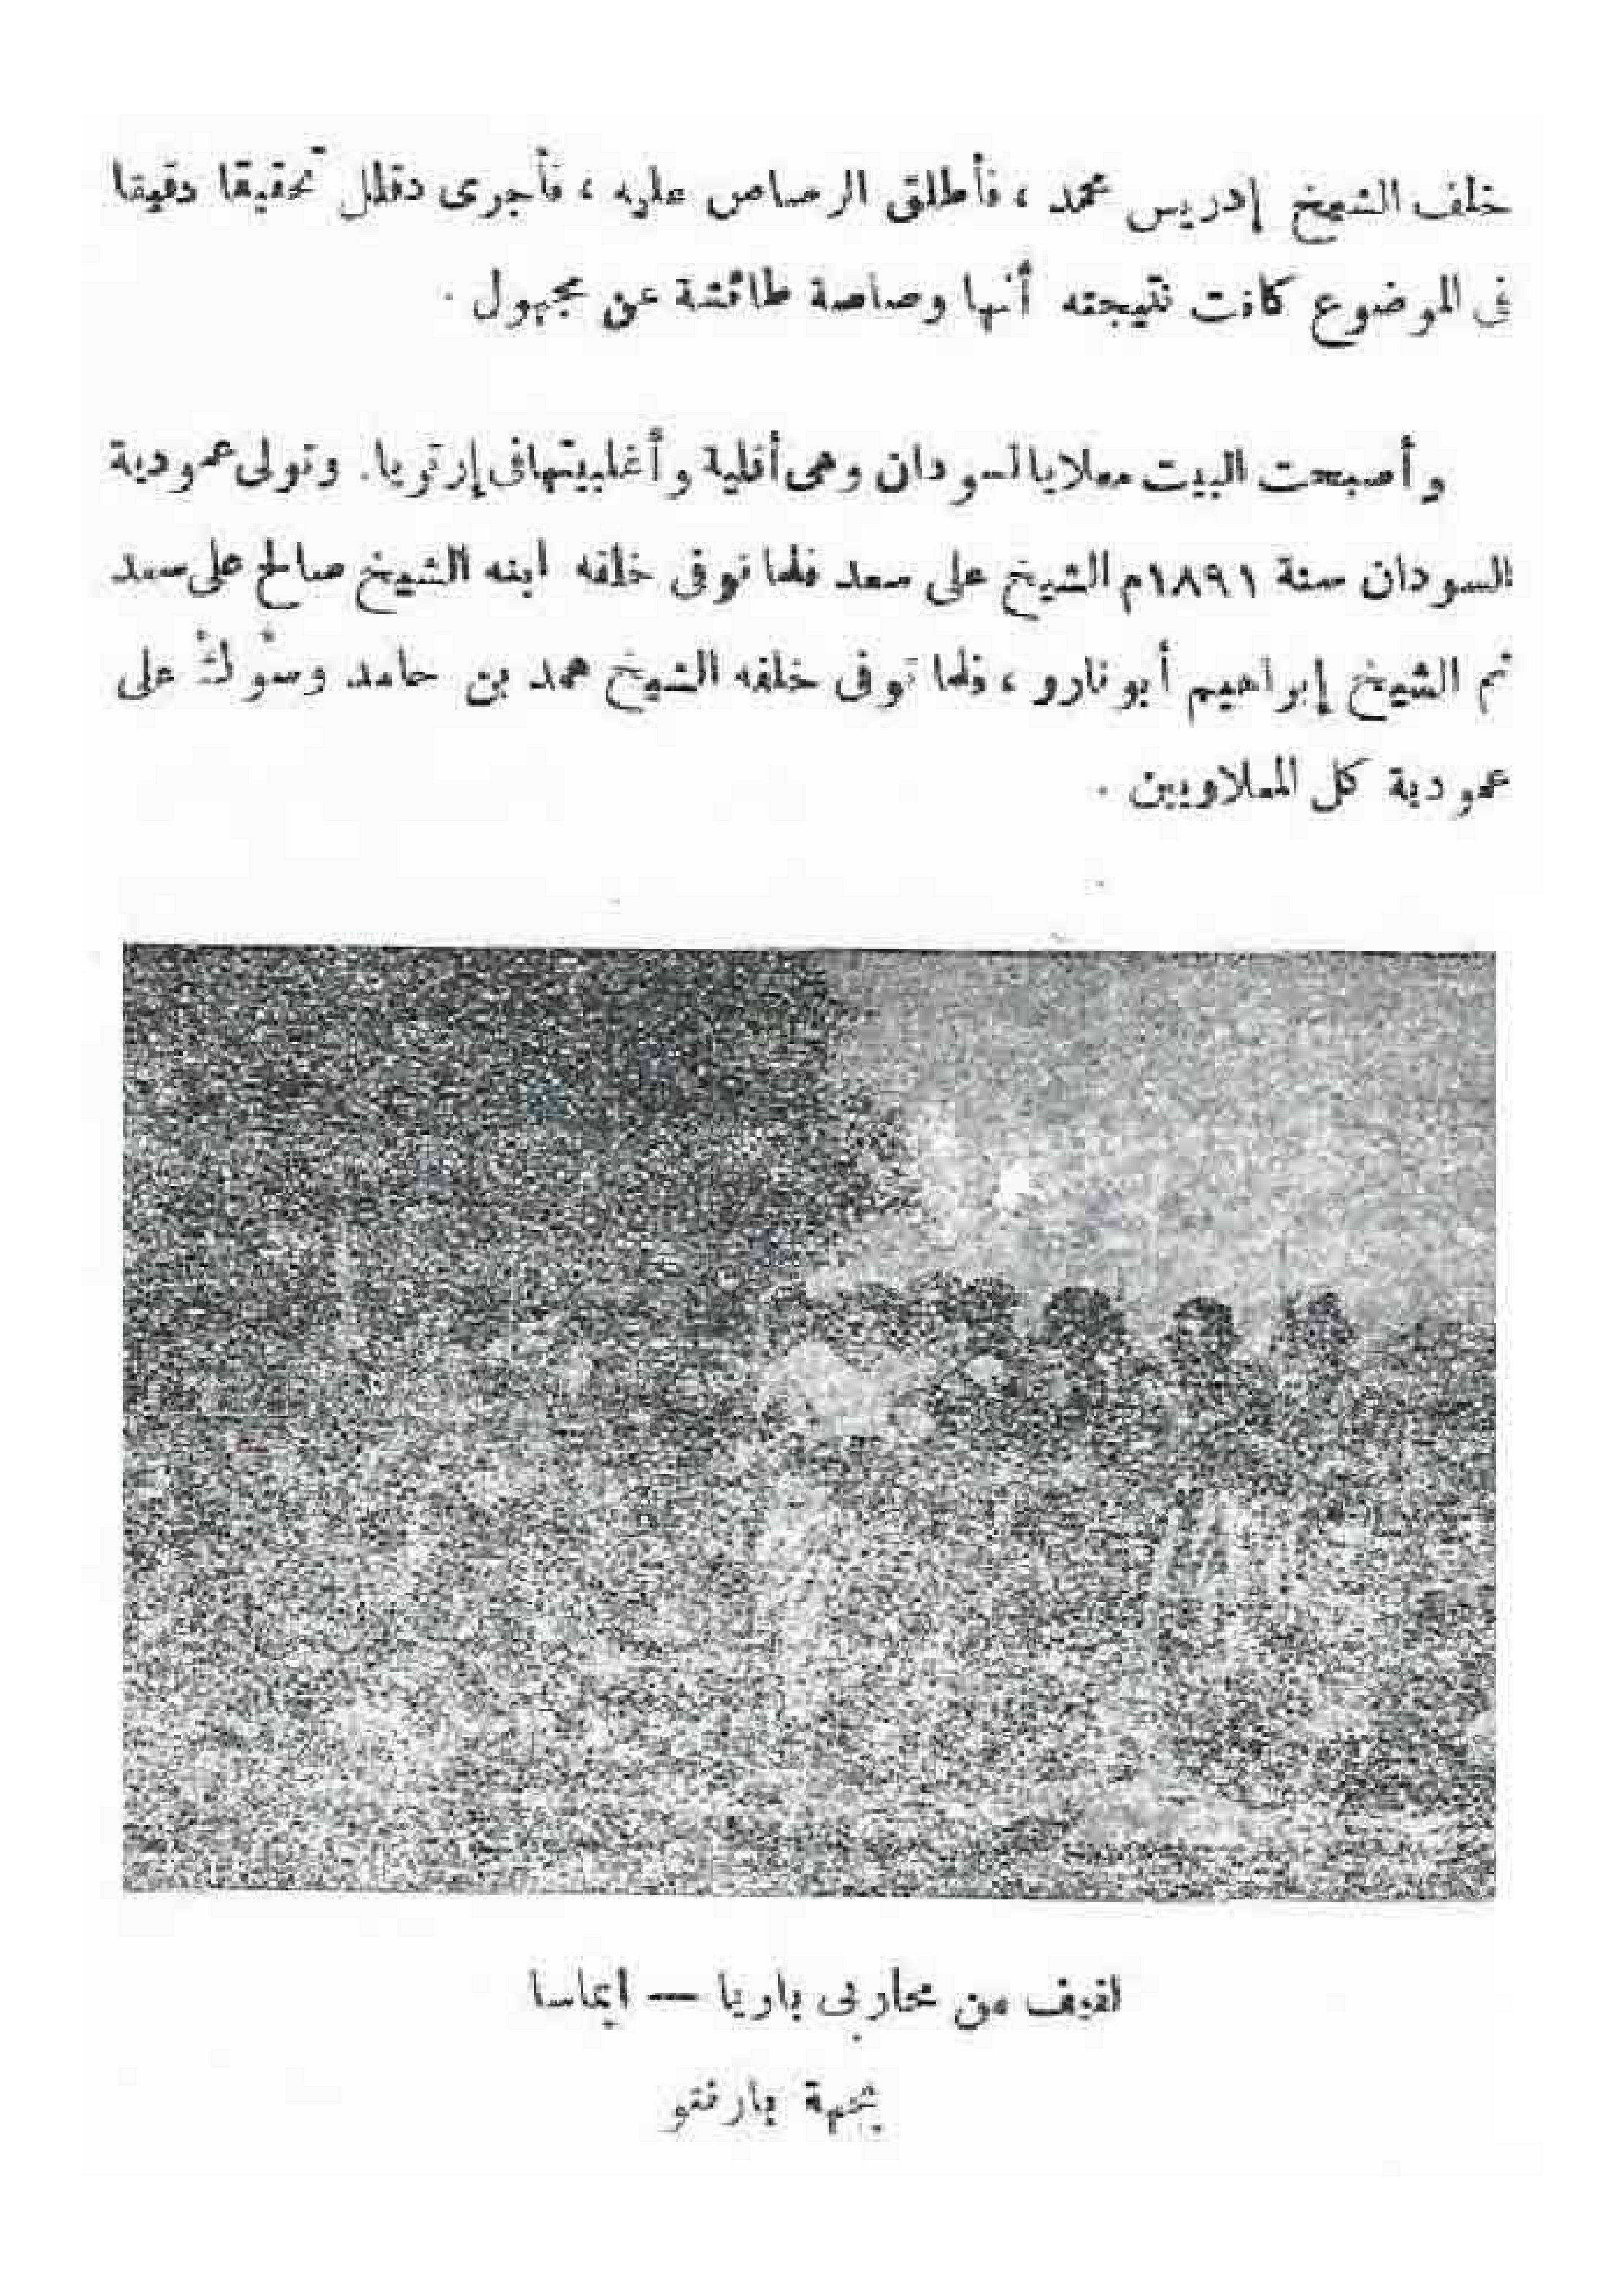 خلف الشيخ إدريس محمد ، فأطلق الرصاص عليه ، فأجرى دقلل تحقيقا دقيقا
فى الموضوع كانت نتيجته أنها رصاصة طائشة عن مجهول .
وأصبحت البيت معلا بالسودان وهى أقلية وأغلبيتها فى إرتريا . وتولى عمودية
السودان سنة ١٨٩١م الشيخ على سعد فلما توفى خلفه ابنه الشيخ صالح على سعد
ثم الشيخ إبراهيم أبو نارو ، فلما توفى خلفه الشيخ محمد بن حامد وسَوْكَتْ على
عمودية كل المعلاويين .
لفيف من محاربى باريا — ايماسا
بجهة بارنتو